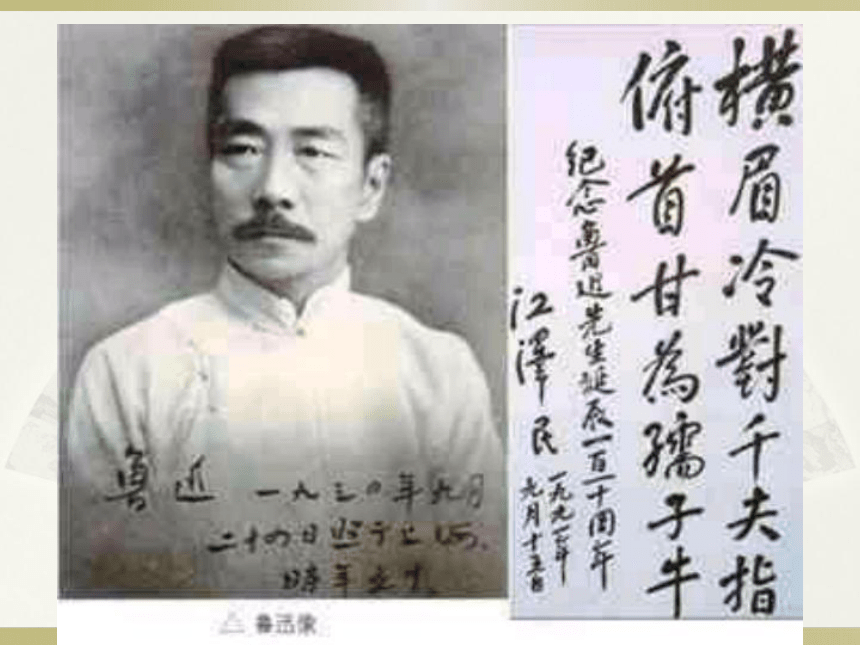 魯迅 一九三〇年九月
二十四日照于上海,
時年五十。
△ 鲁迅像
横眉冷對千夫指
俯首甘為孺子牛
纪念魯迅先生誕辰一百一十周年
江澤民
一九九一年
九月十五日